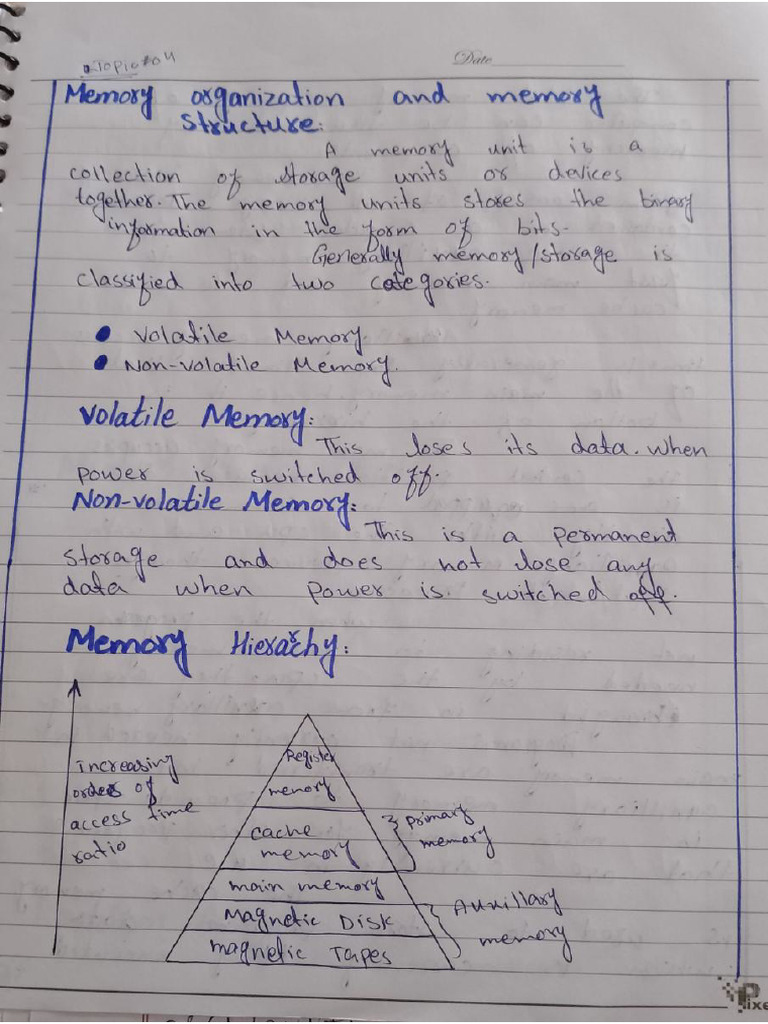 Topic#04
Date
Memory organization and memory
Structure:
A memory unit is a
collection of storage units or devices
together. The memory units stores the binary
information in the form of bits.
Generally memory/storage is
classified into two categories.
• Volatile Memory.
• Non-volatile Memory.
Volatile Memory:
This loses its data. when
power is switched off.
Non-volatile Memory:
This is a permanent
storage and does not lose any
data when power is switched off.
Memory Hierarchy:
increasing
order of
access time
ratio
Register
memory
cache
memory
main memory
Magnetic Disk
magnetic Tapes
primary
memory
Auxillary
memory